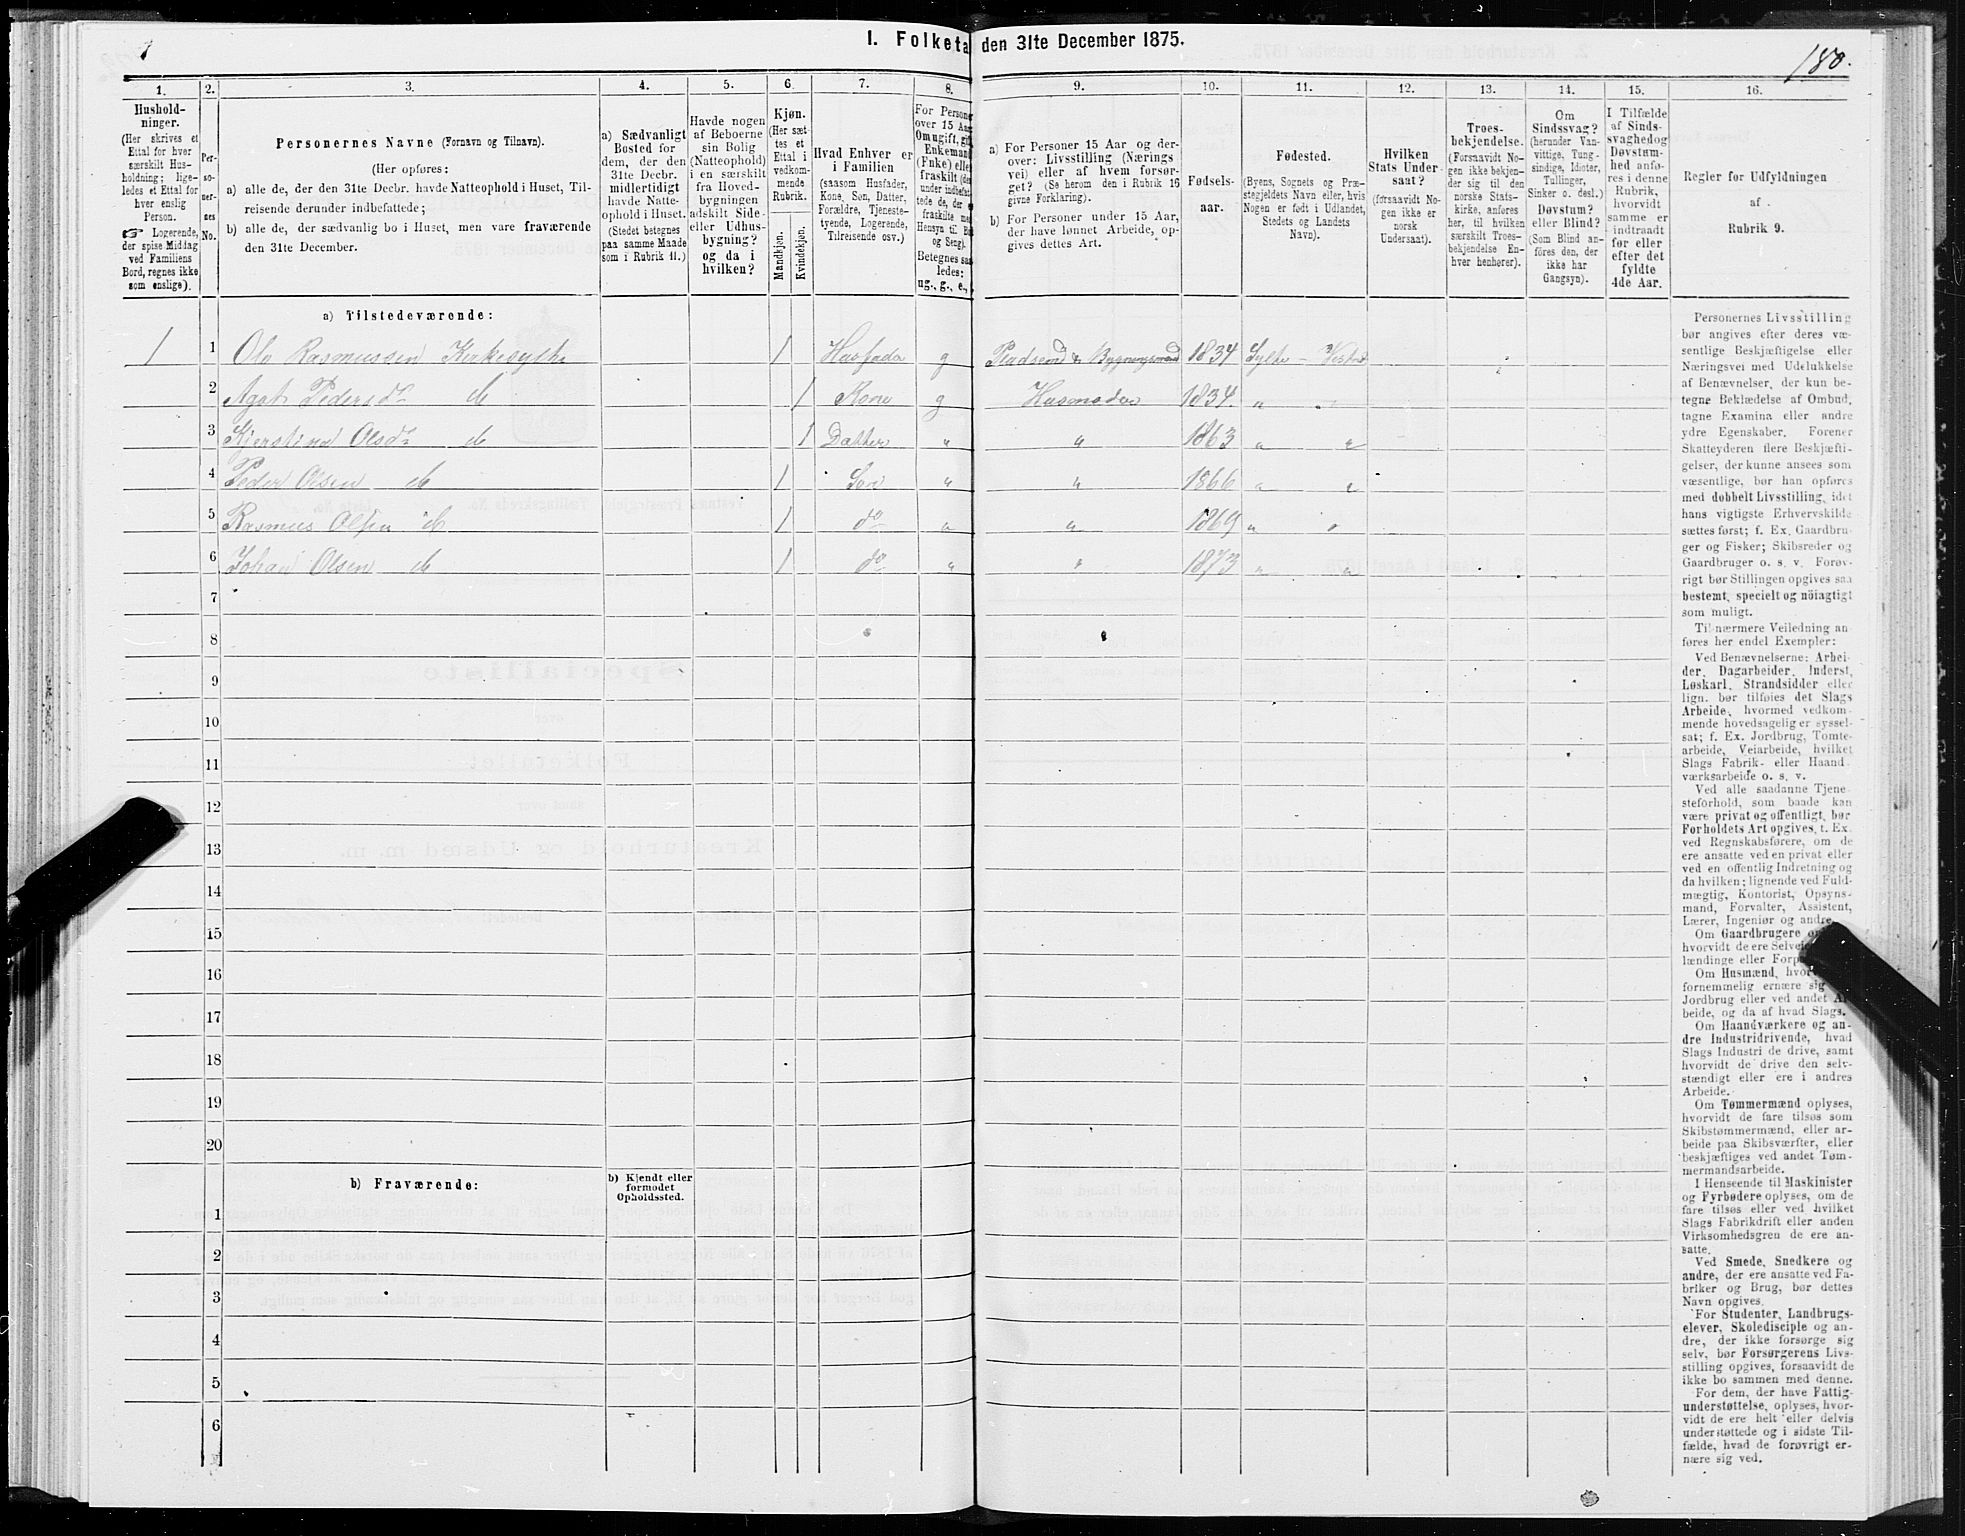 I. Folketa den 31te December 1875.
180.
1. 2. 3. 4. 5. 6. 7. 8. 9. 10. 11. 12. 13. 14. 15. 16.
Hushold-
ninger.
(Her skrives et
Ettal for hver
særskilt Hus-
holdning; lige-
ledes et Ettal for
hver enslig
Person.
☞ Logerende,
der spise Middag
ved Familiens
Bord, regnes ikke
som enslige).
Per-
so-
ner-
nes
No.
Personernes Navne (Fornavn og Tilnavn).
(Her opføres:
a) alle de, der den 31te Decbr. havde Natteophold i Huset, Til-
reisende derunder indbefattede;
b) alle de, der sædvanlig bo i Huset, men vare fraværende
den 31te December.
a) Sædvanligt
Bosted for
dem, der den
31te Decbr.
midlertidigt
havde Natte-
ophold i Huset.
(Stedet betegnes
paa samme Maade
som i Rubrik 11.)
Havde nogen
af Beboerne
sin Bolig
(Natteophold)
i en særskilt
fra Hoved-
bygningen
adskilt Side-
eller Udhus-
bygning?
og da i
hvilken?
Kjøn.
(Her sæt-
tes et
Ettal i
vedkom-
mende
Rubrik.
Mandkjøn.
Kvindekjøn.
Hvad Enhver er
i Familien
(saasom Husfader,
Kone, Søn, Datter,
Forældre, Tjeneste-
tyende, Logerende,
Tilreisende osv.)
For Persone
over 15 Aa
Omugift, gif
Enkemand
(Fnke) elle
fraskilt (de
under indbefat-
tede de, der e
fraskilte me
Hensyn til Bo
og Seng).
Betegnes saa
ledes:
ug., g., e.,
a) For Personer 15 Aar og der-
over: Livsstilling (Nærings
vei) eller af hvem forsør-
get? (Se herom den i Rubrik 16
givne Forklaring).
b) For Personer under 15 Aar,
der have lønnet Arbeide, op-
gives dettes Art.
Fødsels-
aar.
Fødested.
(Byens, Sognets og Præ-
stegjeldets Navn eller, hvis
Nogen er født i Udlandet,
Stedets og Landets
Navn).
Hvilken
Stats Under
saat?
(forsaavidt No-
gen ikke er
norsk
Undersaat).
Troes-
bekjendelse.
(Forsaavidt No-
gen ikke bekjen-
der sig til den
norske Stats-
kirke, anføres
her, til hvilken
særskilt Troes-
bekjendelse En-
hver henhører).
Om
Sindssvag?
(herunder Van-
vittige, Tung-
sindige, Idioter,
Tullinger,
Sinker o. desl.)
Døvstum?
eller Blind?
(Som Blind an-
føres den, der
ikke har
Gangsyn).
I Tilfælde
af Sinds-
svaghed og
Døvstum-
hed anfø-
res i denne
Rubrik,
hvorvidt
samme er
indtraadt
før eller
efter det
fyldte
4de Aar.
Regler for Udfyldningen
af
Rubrik 9.
a) Tilstedeværende:
1 1 Ole Rasmussen Kirkesylte 1 Husfader g Pladsemd & Bygningsmand 1834 Sylte - Vestnæs
2 Agate Pedersdr do 1 Kone g 1834. " "
3 Kjerstine Olsdr do 1 Datter " " 1863 " "
4 Peder Olsen do 1 Søn " " 1866 " "
5 Rasmus Olsen do 1 do " " 1869 " "
6 Johan Olsen do 1 do " " 1873 " "
7
8
9
10
11
12
13
14
15
16
17
18
19
20
b) Fraværende:
b) Kjendt eller
formodet
Opholdssted.
1
2
3
4
5
6
Personernes Livsstilling
bør angives efter deres væ-
sentlige Beskjæftigelse eller
Næringsvei med Udelukkelse
af Benævnelser, der kun be-
tegne Beklædelse af Ombud,
tagne Examina eller andre
ydre Egenskaber. Forener
Skatteyderen flere Beskjæfti-
gelser, der kunne ansees som
væsentlige, bør han opføres
med dobbelt Livsstilling, idet
hans vigtigste Erhvervskilde
sættes først; f. Ex. Gaardbru-
ger og Fisker; Skibsreder og
Gaardbruger o. s. v. Forøv-
rigt bør Stillingen opgives saa
bestemt, specielt og nöiagtigt
som muligt.
Til nærmere Veiledning an
føres her endel Exempler:
Ved Benævnelserne: Arbei-
der, Dagarbeider, Inderst,
Løskarl, Strandsidder eller
lign. bør tilføies det Slags
Arbeide, hvormed vedkom-
mende hovedsagelig er syssel-
sat; f. Ex. Jordbrug, Tomte-
arbeide, Veiarbeide, hvilket
Slags Fabrik- eller Haand
værksarbeide o. s. v.
Ved alle saadanne Tjene-
steforhold, som baade kan
være privat og offentligt, bør
Forholdets Art opgives, t. Ex.
ved Regnskabsførere, om de
ere ansatte ved en privat eller
ved en offentlig Indretning og
da hvilken; lignende ved Fuld-
mægtig, Kontorist, Opsyns-
mand, Forvalter, Assistent,
Lærer, Ingeniør og andre.
Om Gaardbrugere
hvorvidt de ere
lændinge eller
Om Husmænd,
fornemmelig ernære sig
Jordbrug eller ved andet Ar-
beide, og da af hvad Slags.
Om Haandværkere og an-
dre Industridrivende, hvad
Slags Industri de drive, samt
hvorvidt de drive den selv-
stændigt eller ere i andres
Arbeide.
Om Tømmermænd oplyses,
hvorvidt de fare tilsøs som
Skibstømmermænd, eller ar-
beide paa Skibsværfter, eller
beskjæftiges ved andet Tøm-
mermandsarbeide.
I Henseende til Maskinister
og Fyrbødere oplyses, om de
fare tilsøs eller ved hvilket
Slags Fabrikdrift eller anden
Virksomhedsgren de ere an-
satte.
Ved Smede, Snedkere og
andre, der ere ansatte ved Fa-
briker og Brug, bør dettes
Navn opgives.
For Studenter, Landbrugs-
elever, Skoledisciple og an-
dre, der ikke forsørge sig
selv, bør Forsørgerens Livs-
stilling opgives, forsaavidt de
ikke bo sammen med denne.
For dem, der have Fattig-
understøttelse, oplyses, hvor-
vidt de ere helt eller delvis
understøttede og i sidste Til-
fælde, hvad de forøvrigt er-
nære sig ved.